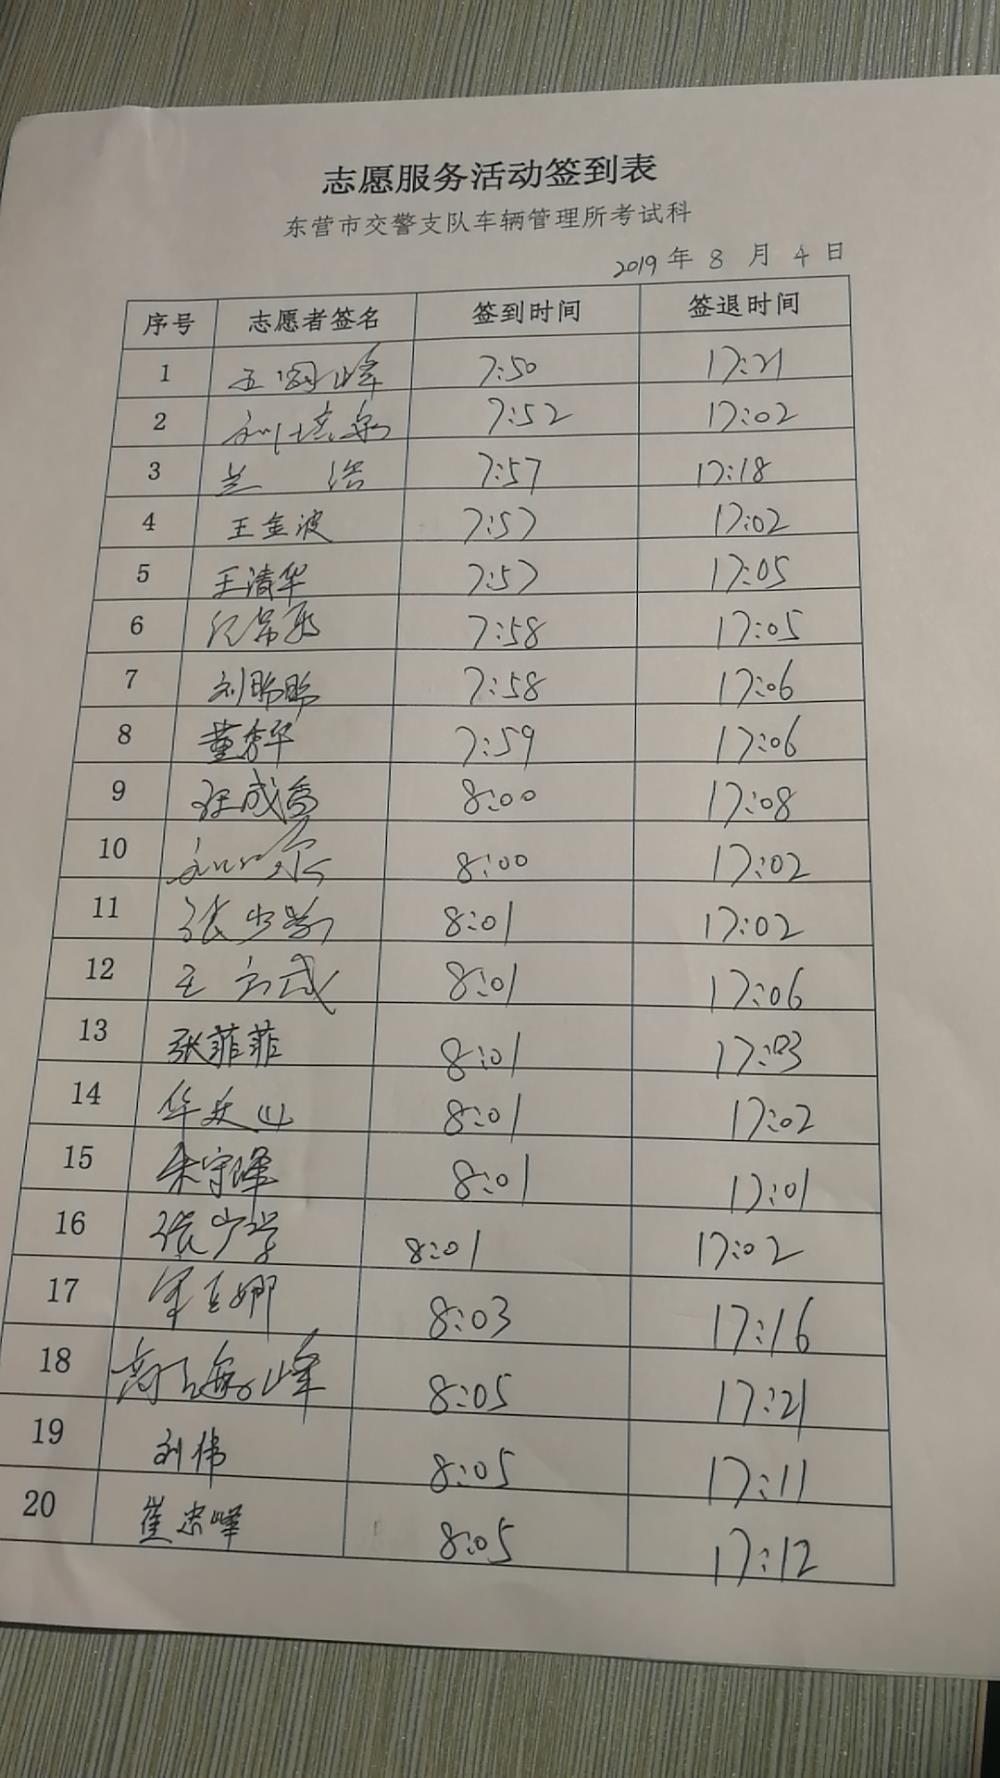 志愿服务活动签到表
东营市交警支队车辆管理所考试科
2019 年 8 月 4 日
序号 志愿者签名 签到时间 签退时间
1 7:50 17:21
2 7:52 17:02
3 兰 浩 7:57 17:18
4 王金波 7:57 17:02
5 王清华 7:57 17:05
6 7:58 17:05
7 刘盼盼 7:58 17:06
8 董秀华 7:59 17:06
9 8:00 17:08
10 8:00 17:02
11 张少学 8:01 17:02
12 王 方武 8:01 17:06
13 张菲菲 8:01 17:03
14 8:01 17:02
15 朱守峰 8:01 17:01
16 张少学 8:01 17:02
17 8:03 17:16
18 8:05 17:21
19 刘伟 8:05 17:11
20 崔忠峰 8:05 17:12